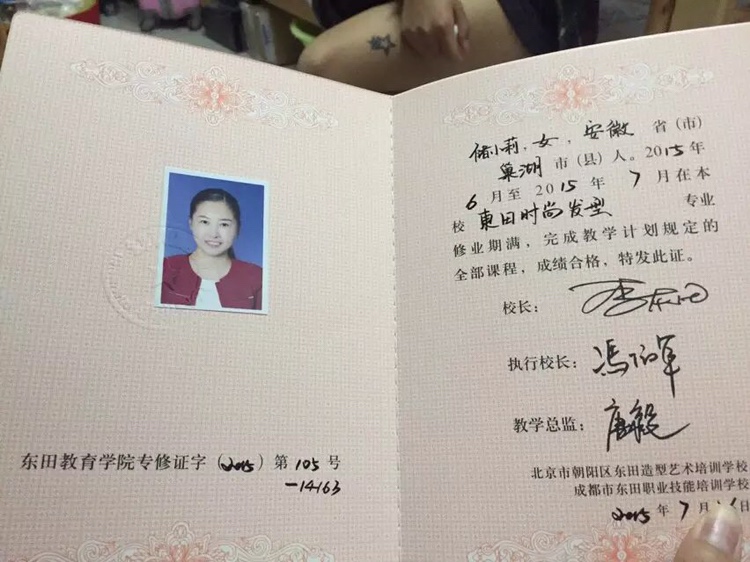 东田教育学院专修证字(2015)第105号
-14163
储小莉,女,安徽省(市)
巢湖市(县)人。2015年
6月至2015年7月在本
校東田时尚发型专业
修业期满,完成教学计划规定的
全部课程,成绩合格,特发此证。
校长:李东田
执行校长:
教学总监:唐毅
北京市朝阳区东田造型艺术培训学校
成都市东田职业技能培训学校
2015年7月 日